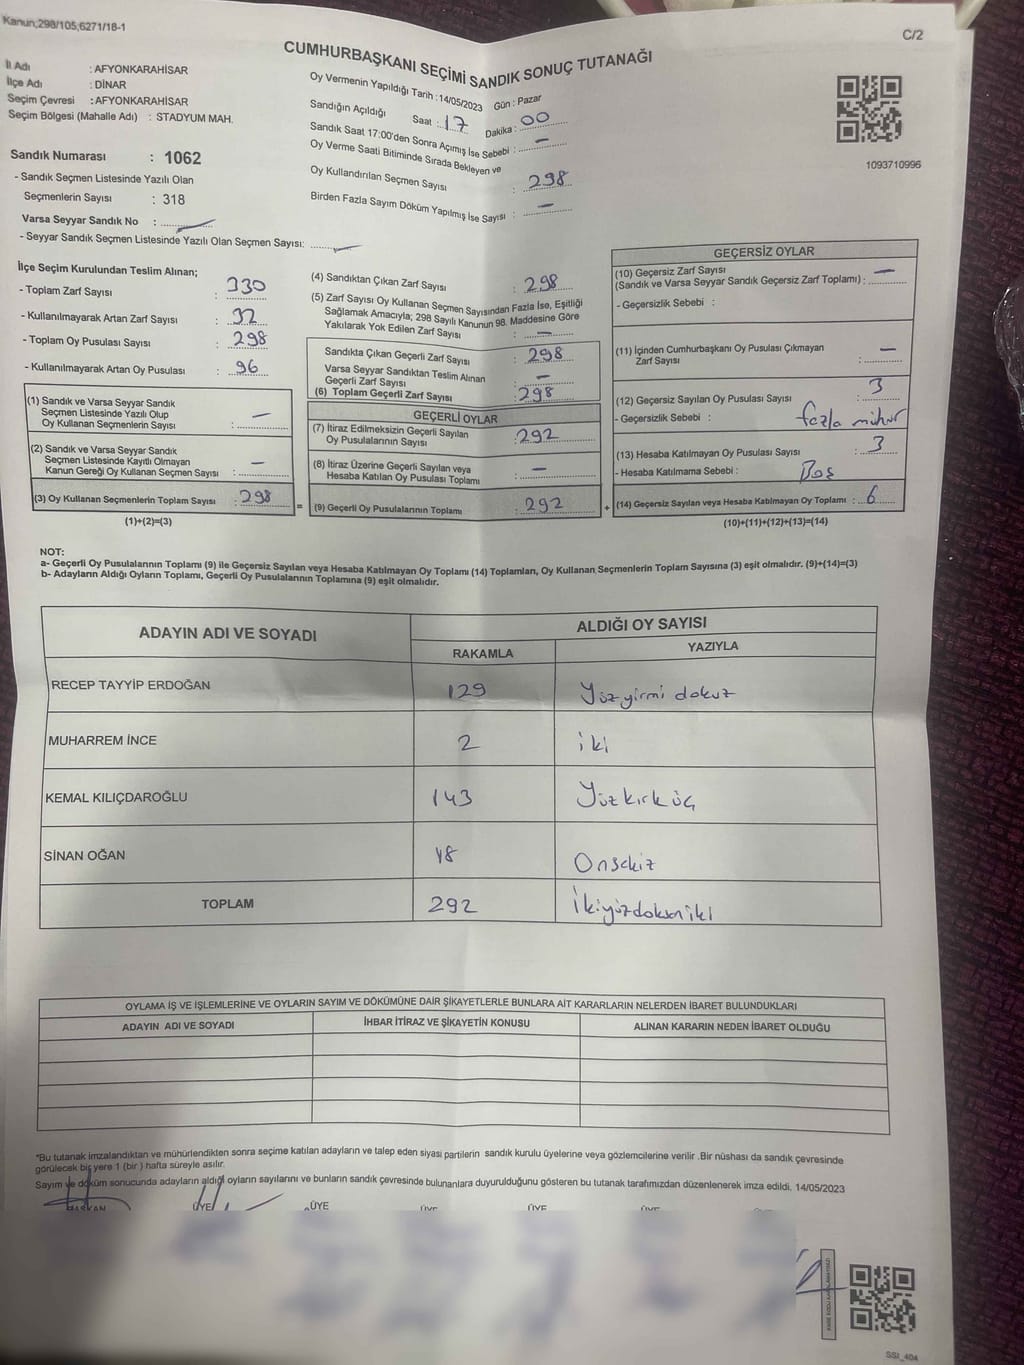 Kanun;298/105;6271/18-1
C/2
CUMHURBAŞKANI SEÇİMİ SANDIK SONUÇ TUTANAĞI
İl Adı : AFYONKARAHİSAR
İlçe Adı : DİNAR
Seçim Çevresi : AFYONKARAHİSAR
Seçim Bölgesi (Mahalle Adı) : STADYUM MAH.
Sandık Numarası : 1062
- Sandık Seçmen Listesinde Yazılı Olan
Seçmenlerin Sayısı : 318
Varsa Seyyar Sandık No :
- Seyyar Sandık Seçmen Listesinde Yazılı Olan Seçmen Sayısı:
Oy Vermenin Yapıldığı Tarih :14/05/2023 Gün : Pazar
Sandığın Açıldığı Saat : 17 Dakika : 00
Sandık Saat 17:00'den Sonra Açımış İse Sebebi : —
Oy Verme Saati Bitiminde Sırada Bekleyen ve
Oy Kullandırılan Seçmen Sayısı : 298
Birden Fazla Sayım Döküm Yapılmış İse Sayısı : —
1093710996
İlçe Seçim Kurulundan Teslim Alınan;
- Toplam Zarf Sayısı : 330
- Kullanılmayarak Artan Zarf Sayısı : 32
- Toplam Oy Pusulası Sayısı : 298
- Kullanılmayarak Artan Oy Pusulası : 96
(1) Sandık ve Varsa Seyyar Sandık
Seçmen Listesinde Yazılı Olup
Oy Kullanan Seçmenlerin Sayısı : —
(2) Sandık ve Varsa Seyyar Sandık
Seçmen Listesinde Kayıtlı Olmayan
Kanun Gereği Oy Kullanan Seçmen Sayısı : —
(3) Oy Kullanan Seçmenlerin Toplam Sayısı : 298
(1)+(2)=(3)
=
(4) Sandıktan Çıkan Zarf Sayısı : 298
(5) Zarf Sayısı Oy Kullanan Seçmen Sayısından Fazla İse, Eşitliği
Sağlamak Amacıyla; 298 Sayılı Kanunun 98. Maddesine Göre
Yakılarak Yok Edilen Zarf Sayısı : —
Sandıkta Çıkan Geçerli Zarf Sayısı : 298
Varsa Seyyar Sandıktan Teslim Alınan
Geçerli Zarf Sayısı : —
(6) Toplam Geçerli Zarf Sayısı : 298
GEÇERLİ OYLAR
(7) İtiraz Edilmeksizin Geçerli Sayılan
Oy Pusulalarının Sayısı : 292
(8) İtiraz Üzerine Geçerli Sayılan veya
Hesaba Katılan Oy Pusulası Toplamı : —
(9) Geçerli Oy Pusulalarının Toplamı : 292
+
GEÇERSİZ OYLAR
(10) Geçersiz Zarf Sayısı
(Sandık ve Varsa Seyyar Sandık Geçersiz Zarf Toplamı) : —
- Geçersizlik Sebebi :
(11) İçinden Cumhurbaşkanı Oy Pusulası Çıkmayan
Zarf Sayısı : —
(12) Geçersiz Sayılan Oy Pusulası Sayısı : 3
- Geçersizlik Sebebi : fazla mühür
(13) Hesaba Katılmayan Oy Pusulası Sayısı : 3
- Hesaba Katılmama Sebebi : Boş
(14) Geçersiz Sayılan veya Hesaba Katılmayan Oy Toplamı : 6
(10)+(11)+(12)+(13)=(14)
NOT:
a- Geçerli Oy Pusulalarının Toplamı (9) ile Geçersiz Sayılan veya Hesaba Katılmayan Oy Toplamı (14) Toplamları, Oy Kullanan Seçmenlerin Toplam Sayısına (3) eşit olmalıdır. (9)+(14)=(3)
b- Adayların Aldığı Oyların Toplamı, Geçerli Oy Pusulalarının Toplamına (9) eşit olmalıdır.
ADAYIN ADI VE SOYADI ALDIĞI OY SAYISI
RAKAMLA YAZIYLA
RECEP TAYYİP ERDOĞAN 129 Yüzyirmi dokuz
MUHARREM İNCE 2 iki
KEMAL KILIÇDAROĞLU 143 Yüzkırküç
SİNAN OĞAN 18 Onsekiz
TOPLAM 292 İkiyüzdoksaniki
OYLAMA İŞ VE İŞLEMLERİNE VE OYLARIN SAYIM VE DÖKÜMÜNE DAİR ŞİKAYETLERLE BUNLARA AİT KARARLARIN NELERDEN İBARET BULUNDUKLARI
ADAYIN ADI VE SOYADI İHBAR İTİRAZ VE ŞİKAYETİN KONUSU ALINAN KARARIN NEDEN İBARET OLDUĞU
*Bu tutanak imzalandıktan ve mühürlendikten sonra seçime katılan adayların ve talep eden siyasi partilerin sandık kurulu üyelerine veya gözlemcilerine verilir .Bir nüshası da sandık çevresinde
görülecek bir yere 1 (bir ) hafta süreyle asılır.
Sayım ve döküm sonucunda adayların aldığı oyların sayılarını ve bunların sandık çevresinde bulunanlara duyurulduğunu gösteren bu tutanak tarafımızdan düzenlenerek imza edildi. 14/05/2023
BAŞKAN ÜYE ÜYE ÜYE ÜYE
SSI_404